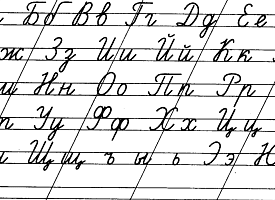 Б б В в Г г Д д Е е
ж З з И и Й й К к
м Н н О о П п Р р
т У у Ф ф Х х Ц ц
Щ щ ъ ы ь Э э Ю